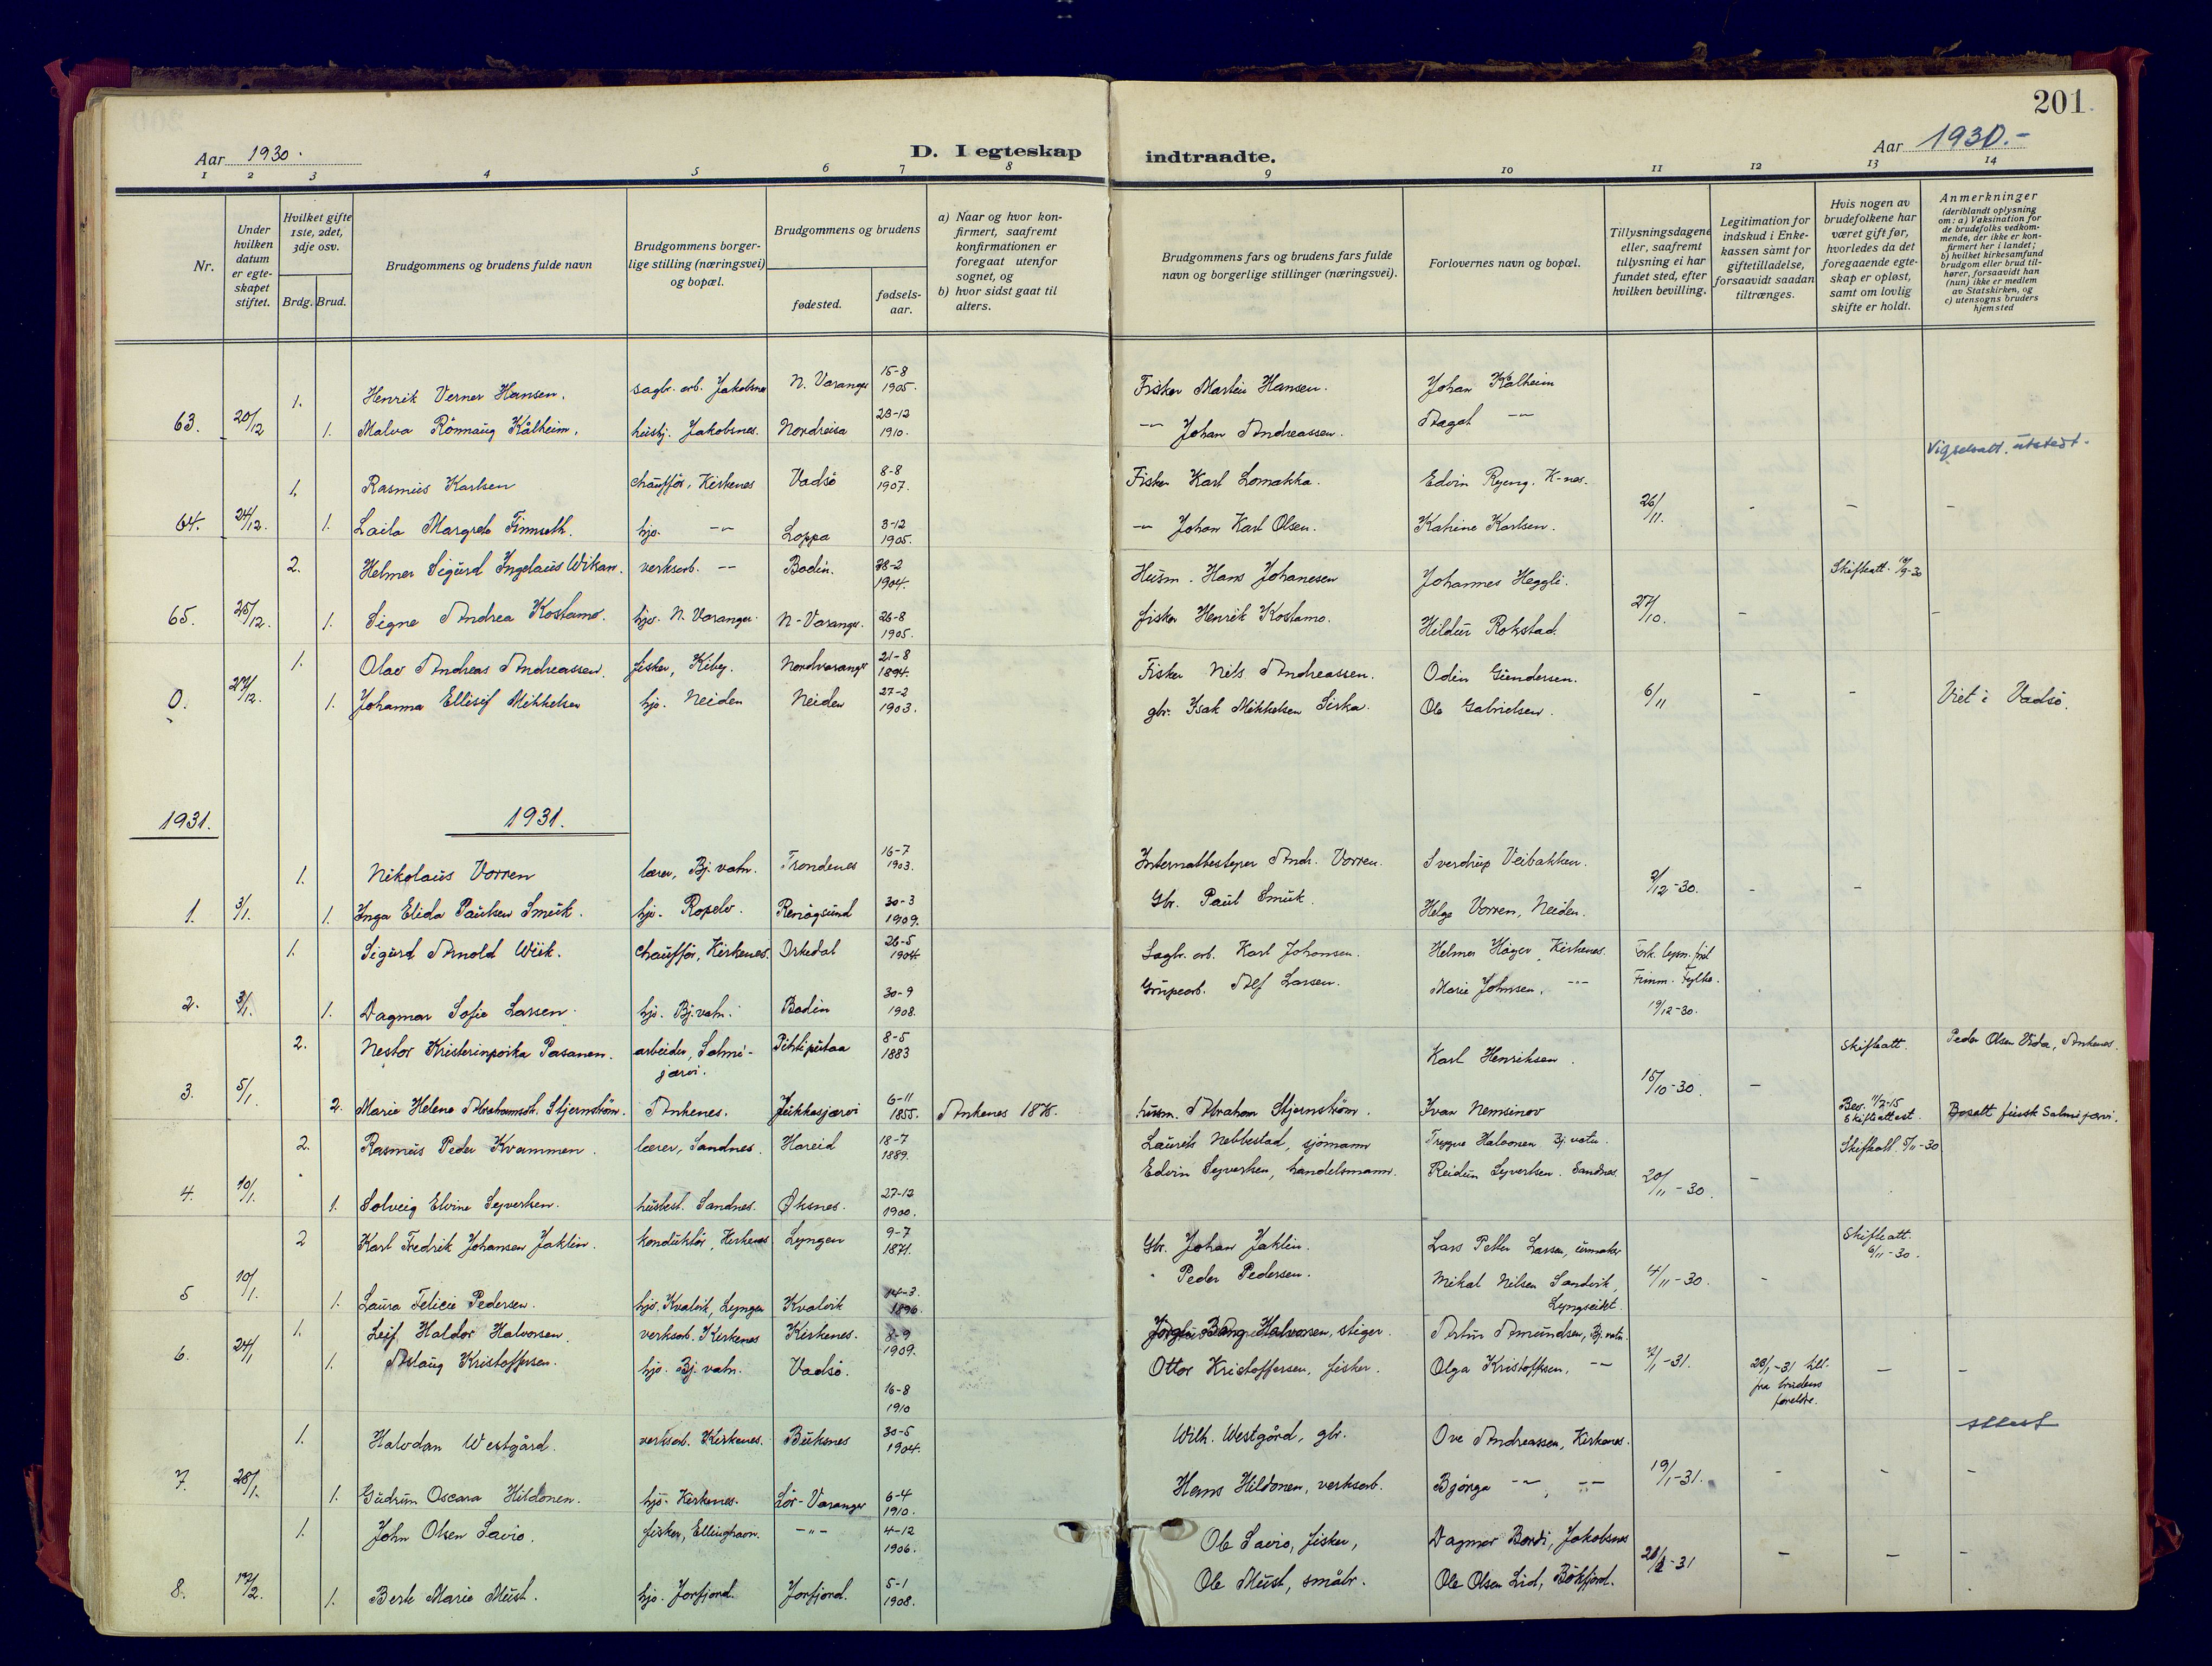 201.
Aar 1930.
D. I egteskap indtraadte.
Aar 1930.-
1 2 3 4 5 6 7 8 9 10 11 12 13 14
Nr.
Under hvilken datum er egteskapet stiftet.
Hvilket gifte 1ste, 2det, 3dje osv.
Brdg. Brud.
Brudgommens og brudens fulde navn
Brudgommens borgerlige stilling (næringsvei) og bopæl.
Brudgommens og brudens
fødested.
fødselsaar.
a) Naar og hvor konfirmert, saafremt konfirmationen er foregaat utenfor sognet, og
b) hvor sidst gaat til alters.
Brudgommens fars og brudens fars fulde navn og borgerlige stillinger (næringsvei).
Forlovernes navn og bopæl.
Tillysningsdagene eller, saafremt tillysning ei har fundet sted, efter hvilken bevilling.
Legitimation for indskud i Enkekassen samt for giftetilladelse, forsaavidt saadan tiltrænges.
Hvis nogen av brudefolkene har været gift før, hvorledes da det foregaaende egteskap er opløst, samt om lovlig skifte er holdt.
Anmerkninger
(deriblandt oplysning om: a) Vaksination for de brudefolks vedkommende, der ikke er konfirmert her i landet; b) hvilket kirkesamfund brudgom eller brud tilhører, forsaavidt han (hun) ikke er medlem av Statskirken, og c) utensogns bruders hjemsted
1. Henrik Verner Hansen. sagbr. arb. Jakobsnes N. Varanger 15-8 1905. Fisker Martin Hansen. Johan Kålheim
63. 20/12 1. Malva Rönnaug Kålheim, hushj. Jakobsnes. Nordreisa 23-12 1910. -"- Johan Andreassen. Aagot -"-
Vigselsatt. utstedt.
1. Rasmus Karlsen chauffør, Kirkenes Vadsö 8-8 1907. Fisker Karl Lomakka. Edvin Ryeng. K-nes.
64. 24/12. 1. Laila Margrete Finnseth. hjv. -"- Loppa 3-12 1905. -"- Johan Karl Olsen. Katrine Karlsen. 26/11. - - -
2. Helmer Sigurd Ingolaus Wikan. verksarb. -"- Bodin. 28-2 1904. Husm. Hans Johanesen Johannes Heggli. Skifteatt.
65. 25/12. 1. Signe Andrea Kostamo. hjv. N. Varanger. N-Varanger. 26-8 1905. fisker Henrik Kostamo. Hildur Rokstad. 27/10. - -
1. Olav Andreas Andreassen. fisker, Kiby. Nordvaranger 21-8 1894. Fisker Nils Andreassen. Odin Gundersen.
0. 27/12. 1. Johanna Ellisif Mikkelsen hjv. Neiden Neiden 27-2 1903. gbr. Isak Mikkelsen Sirka. Ole Gabrielsen. 6/11 - - Viet i Vadsö.
1931. 1931.
1. Nikolaus Vorren lærer, Bj. vatn. Trondenes 16-7 1903. Internatbestyrer Andr. Vorren. Sverdrup Veibakken.
1. 3/1. 1. Inga Elida Paulsen Smuk. hjv. Ropelv. Renögsund 30-3 1909. Gbr. Paul Smuk. Helge Vorren, Neiden. 9/12-30. - -
1. Sigurd Arnold Wiik. chauffør, Kirkenes. Orkedal 26-5 1904. Sagbr. arb. Karl Johansen. Helmer Höyer, Kirkenes.
2. 3/1. 1. Dagmar Sofie Larsen. hjv. Bj.vatn. Bodin 30-9 1908. Grubearb. Alf Larsen. Marie Johnsen, -"- Finnm. Fylke. 19/12-30.
2. Nestor Kristerinpoika Pasanen. arbeider, Salmijærvi. Pihtipudas 8-5 1883 Karl Henriksen. Skifteatt. Peder Olsen Vida, Ankenes.
3. 5/1. 2. Marie Helene Abrahamsdt. Stjernström. Ankenes. Jukkasjærvi 6-11 1855. Ankenes 1875. husm. Abraham Stjernström. Ivan Nemsinov 15/10-30. - Skifteattest. Bosatt finsk Salmijærvi.
2. Rasmus Peder Kvammen. lærer, Sandnes. Hareid 18-7 1889. Laurits Nebbestad, sjömann Trygve Halvonen Bj. vatn. Skifteatt. 5/11-30
4. 10/1. 1. Solveig Elvine Syvertsen. husbest. Sandnes. Øksnes. 27-12 1900. Edvin Syvertsen, handelsmann. Reidun Syvertsen. Sandnes. 20/11-30. -
2 Karl Fredrik Johansen Jaklin. konduktör, Kirkenes Lyngen 9-7 1871. Gbr. Johan Jaklin. Lars Petter Larsen, urmaker Skifteatt. 6/11-30.
5 10/1. 1. Laura Felicie Pedersen. hjv. Kvalvik, Lyngen Kvalvik 14-3 1896. " Peder Pedersen. Mikal Nilsen Sandvik, Lyngseidet. 4/11-30. -
1. Leif Haldor Halvorsen verksarb. Kirkenes Kirkenes. 8-9 1909. Halvorsen, stiger. Artur Amundsen, Bj. vatn.
6. 24/1 1. Aslaug Kristoffersen. hjv. Bj. vatn. Vadsö. 16-8 1910 Ottar Kristoffersen, fisker. Olga Kristoffersen, -"- 7/1-31. 20/1-31 till. fra brudens foreldre. - -
1. Halvdan Westgård. verksarb. Kirkenes. Buksnes 30-5 1904. Wilh. Westgård, gbr. Ove Andreassen, Kirkenes. attest
7. 28/1. 1. Gudrun Oscara Hildonen. hjv. Kirkenes. Sör-Varanger 6-4 1910. Hans Hildonen, verksarb. Bjørga -"-, -"- 19/1-31. - - -
1. John Olsen Savio. fisker, Ellinghavn. -"- 4-12 1906. Ole Savio, fisker, Dagmar Bordi, Jakobsnes
8. 17/2. 1. Berit Marie Must. hjv. Jarfjord. Jarfjord. 5-1 1908. Ole Must, småbr. Ole Olsen Lid, Bökfjord. - - -